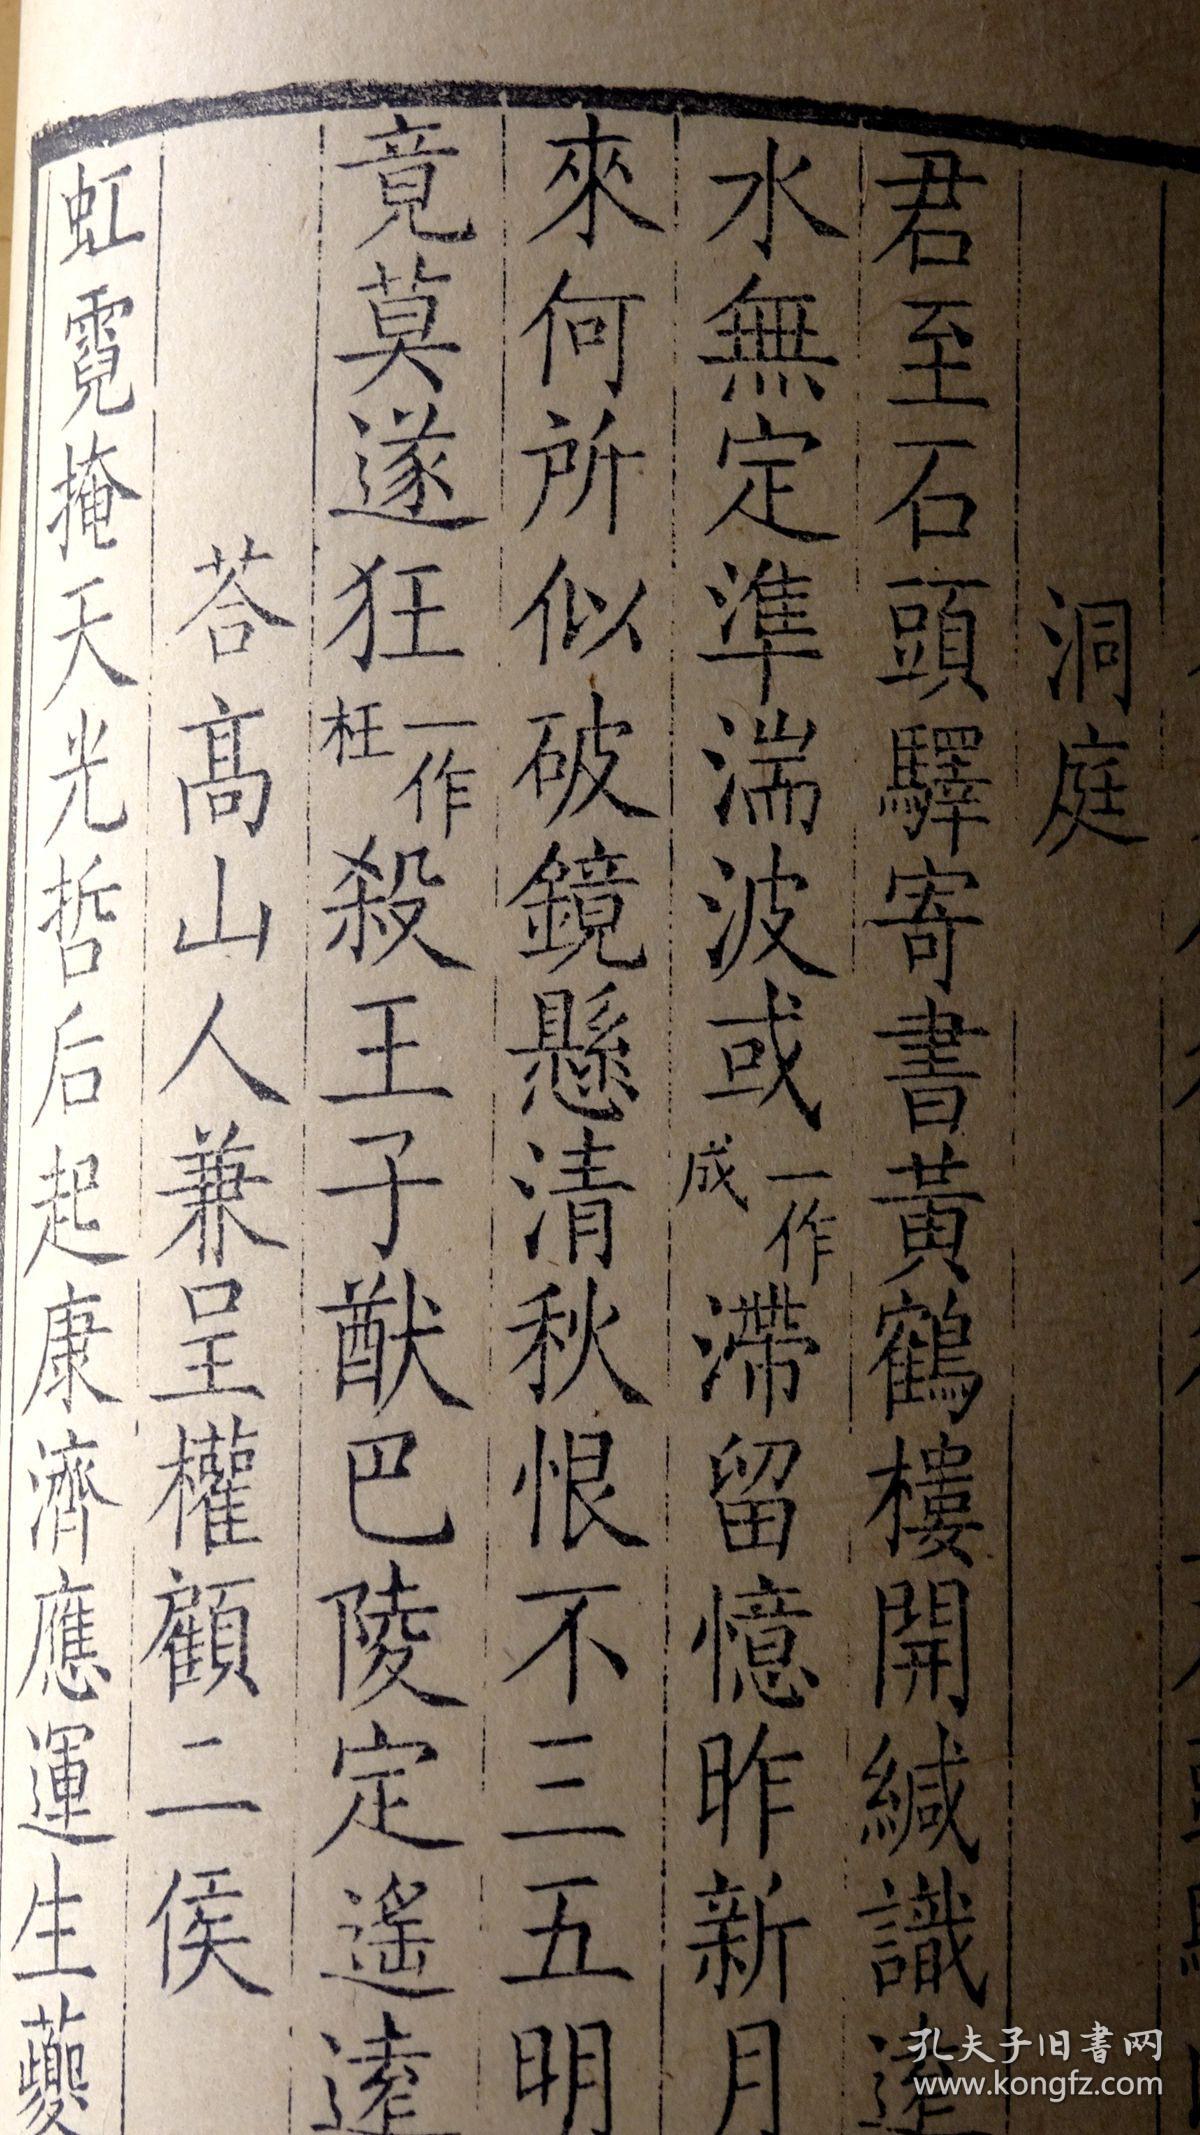 洞庭
君至石頭驛寄書黃鶴樓開緘識遠
水無定準湍波或一作成滯留憶昨新月
來何所似破鏡懸清秋恨不三五明
竟莫遂狂一作枉殺王子猷巴陵定遙遠
荅髙山人兼呈權顧二侯
虹霓掩天光哲后起康濟應運生夔
孔夫子旧书网
www.kongfz.com